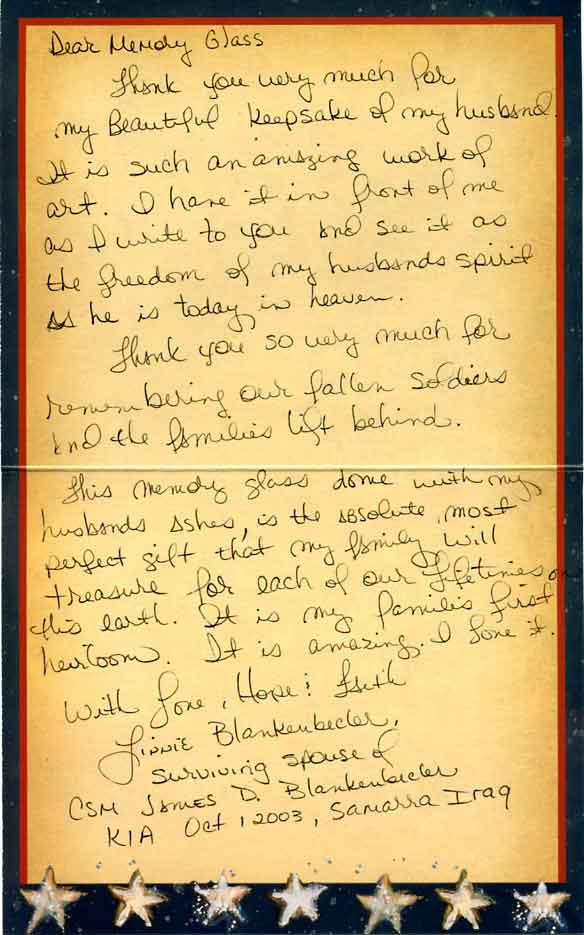 Dear Memory Glass
Thank you very much for
my Beautiful keepsake of my husband.
It is such an amazing work of
art. I have it in front of me
as I write to you and see it as
the freedom of my husbands spirit
As he is today in heaven.
Thank you so very much for
remembering our fallen soldiers
and the families left behind.
This memory glass dome with my
husbands Ashes, is the Absolute, most
perfect gift that my family will
treasure for each of our lifetimes on
this earth. It is my families first
heirloom. It is amazing. I love it.
With Love, Hope & Faith
Linnie Blankenbecler,
surviving spouse of
CSM James D. Blankenbecler
KIA Oct 1 2003, Samarra Iraq